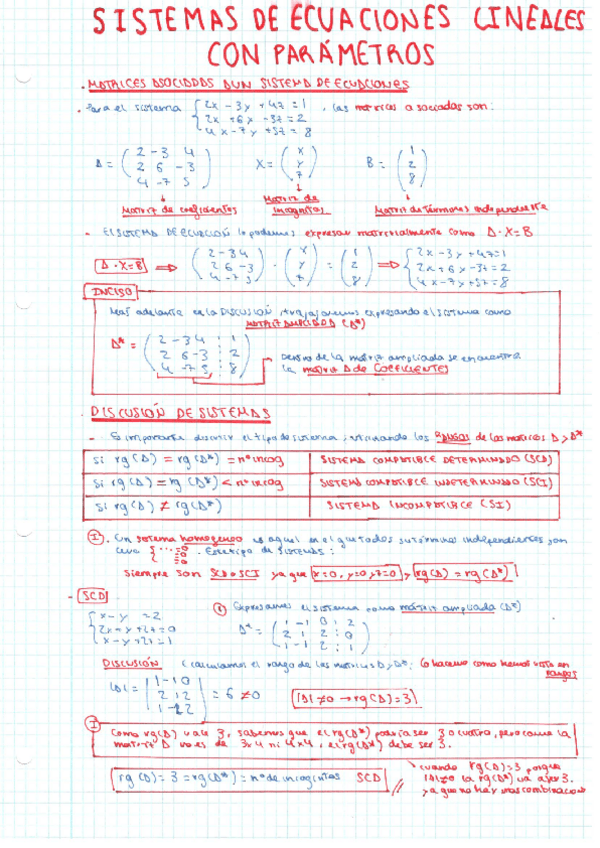 SISTEMAS DE ECUACIONES LINEALES
CON PARÁMETROS
. MATRICES ASOCIADAS A UN SISTEMA DE ECUACIONES
. Para el sistema { 2x - 3y + 4z = 1 , las matrices asociadas son:
2x + 6y - 3z = 2
4x - 7y + 5z = 8
A = ( 2 -3 4 ) X = ( x ) B = ( 1 )
( 2 6 -3 ) ( y ) ( 2 )
( 4 -7 5 ) ( z ) ( 8 )
↓ ↓ ↓
Matriz de coeficientes Matriz de incognitas Matriz de Términos independiente
- El SISTEMA DE ECUACIÓN lo podemos expresar matricialmente como A · X = B
A · X = B ⇒ ( 2 -3 4 ) · ( x ) = ( 1 ) ⇒ { 2x - 3y + 4z = 1
( 2 6 -3 ) ( y ) ( 2 ) 2x + 6y - 3z = 2
( 4 -7 5 ) ( z ) ( 8 ) 4x - 7y + 5z = 8
INCISO
Más adelante en la DISCUSIÓN, trabajaremos expresando el sistema como
MATRIZ AMPLIADA (A*)
A* = ( 2 -3 4 : 1 )
( 2 6 -3 : 2 )
( 4 -7 5 : 8 )
Dentro de la matriz ampliada se encuentra
la matriz A de COEFICIENTES
. DISCUSIÓN DE SISTEMAS
- Es importante discutir el tipo de sistema, utilizando los RANGOS de las matrices A y A*
si rg(A) = rg(A*) = nº incog SISTEMA COMPATIBLE DETERMINADO (SCD)
si rg(A) = rg(A*) < nº incog SISTEMA COMPATIBLE INDETERMINADO (SCI)
si rg(A) ≠ rg(A*) SISTEMA INCOMPATIBLE (SI)
I . Un sistema homogeneo es aquel en el que todos sus términos independientes son
cero { ... =0 =0 =0 . Este tipo de sistemas:
siempre son SCD o SCI ya que x=0, y=0, z=0 y rg(A) = rg(A*) !
- SCD
{ x - y = 2
2x + y + 2z = 0
x - y + 2z = 1
① Expresamos el sistema como matriz ampliada (A*)
A* = ( 1 -1 0 : 2 )
( 2 1 2 : 0 )
( 1 -1 2 : 1 )
DISCUSIÓN (calculamos el rango de las matrices A y A*; lo hacemos como hemos visto en
rangos
|A| = | 1 -1 0 | = 6 ≠ 0 |A| ≠ 0 → rg(A) = 3
| 2 1 2 |
| 1 -1 2 |
I
Como rg(A) vale 3, sabemos que el rg(A*) podría ser 3 o cuatro, pero como la
matriz A no es de 3x4 ni 4x4, el rg(A*) debe ser 3.
rg(A) = 3 = rg(A*) = nº de incognitas SCD
cuando rg(A) = 3 porque
|A| ≠ 0 la rg(A*) va a ser 3.
ya que no hay mas combinacion